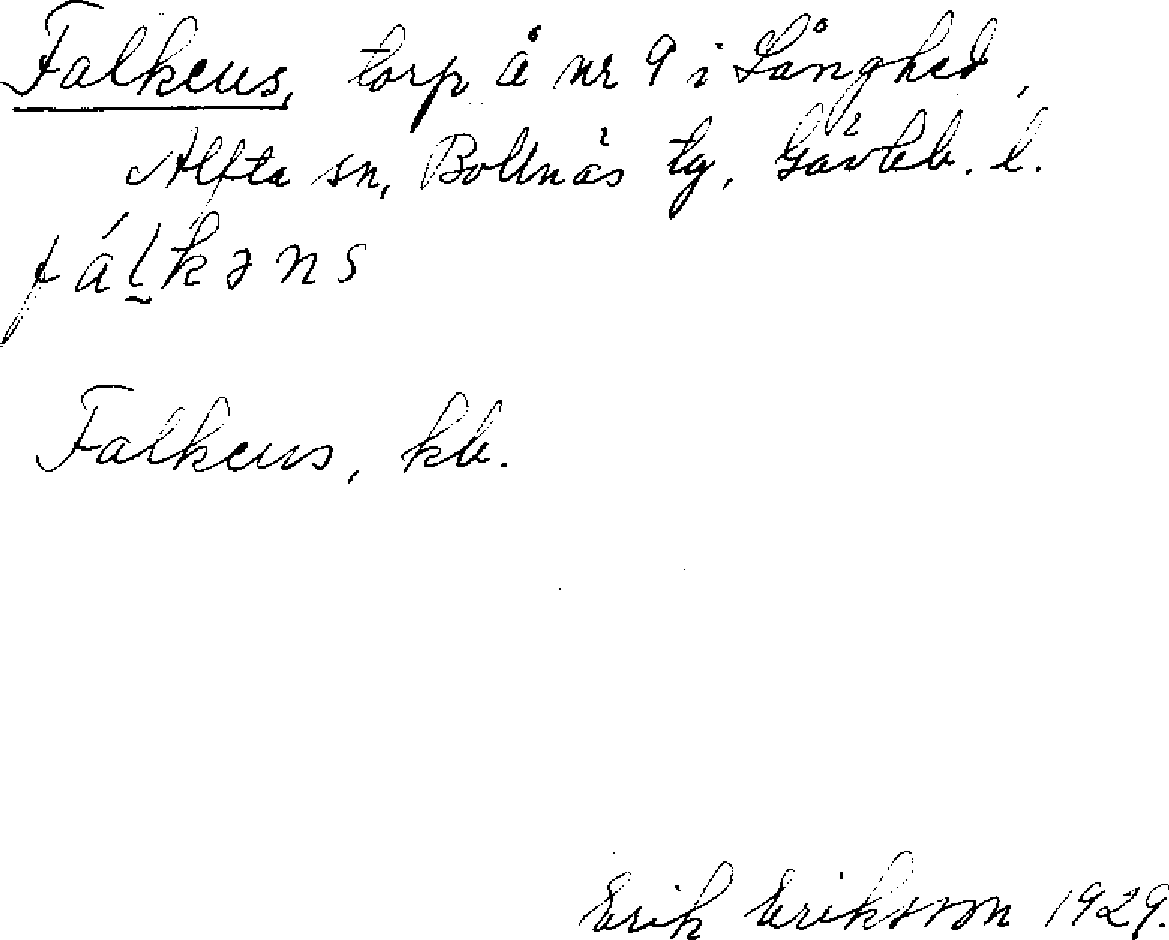 Falkens, torp å nr 9 i Långhed,
Alfta sn, Bollnäs tg, Gävleb. l.
fálkəns
Falkens, kb.
Erik Eriksson 1929.